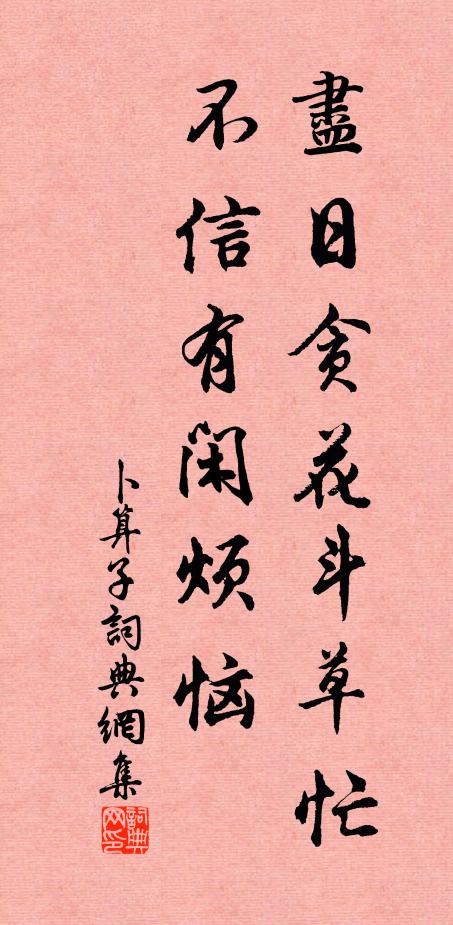 盡日貪花斗草忙
不信有閑煩恼
卜算子詞典網集
詞典
网印